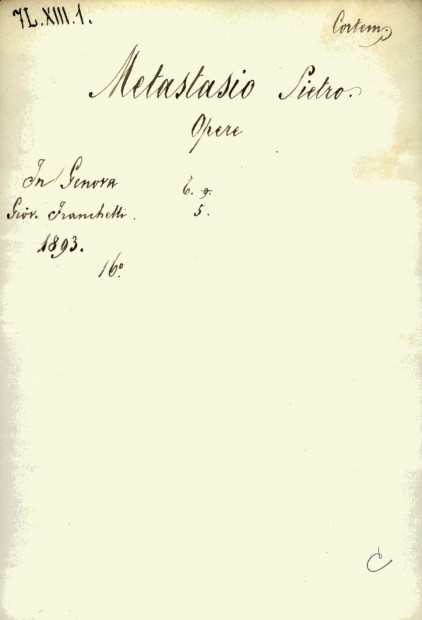 7L.XIII.1.
Cortem.
Metastasio Pietro.
Opere
In Genova
Giov. Franchelli.
5.
1893.
16º
C